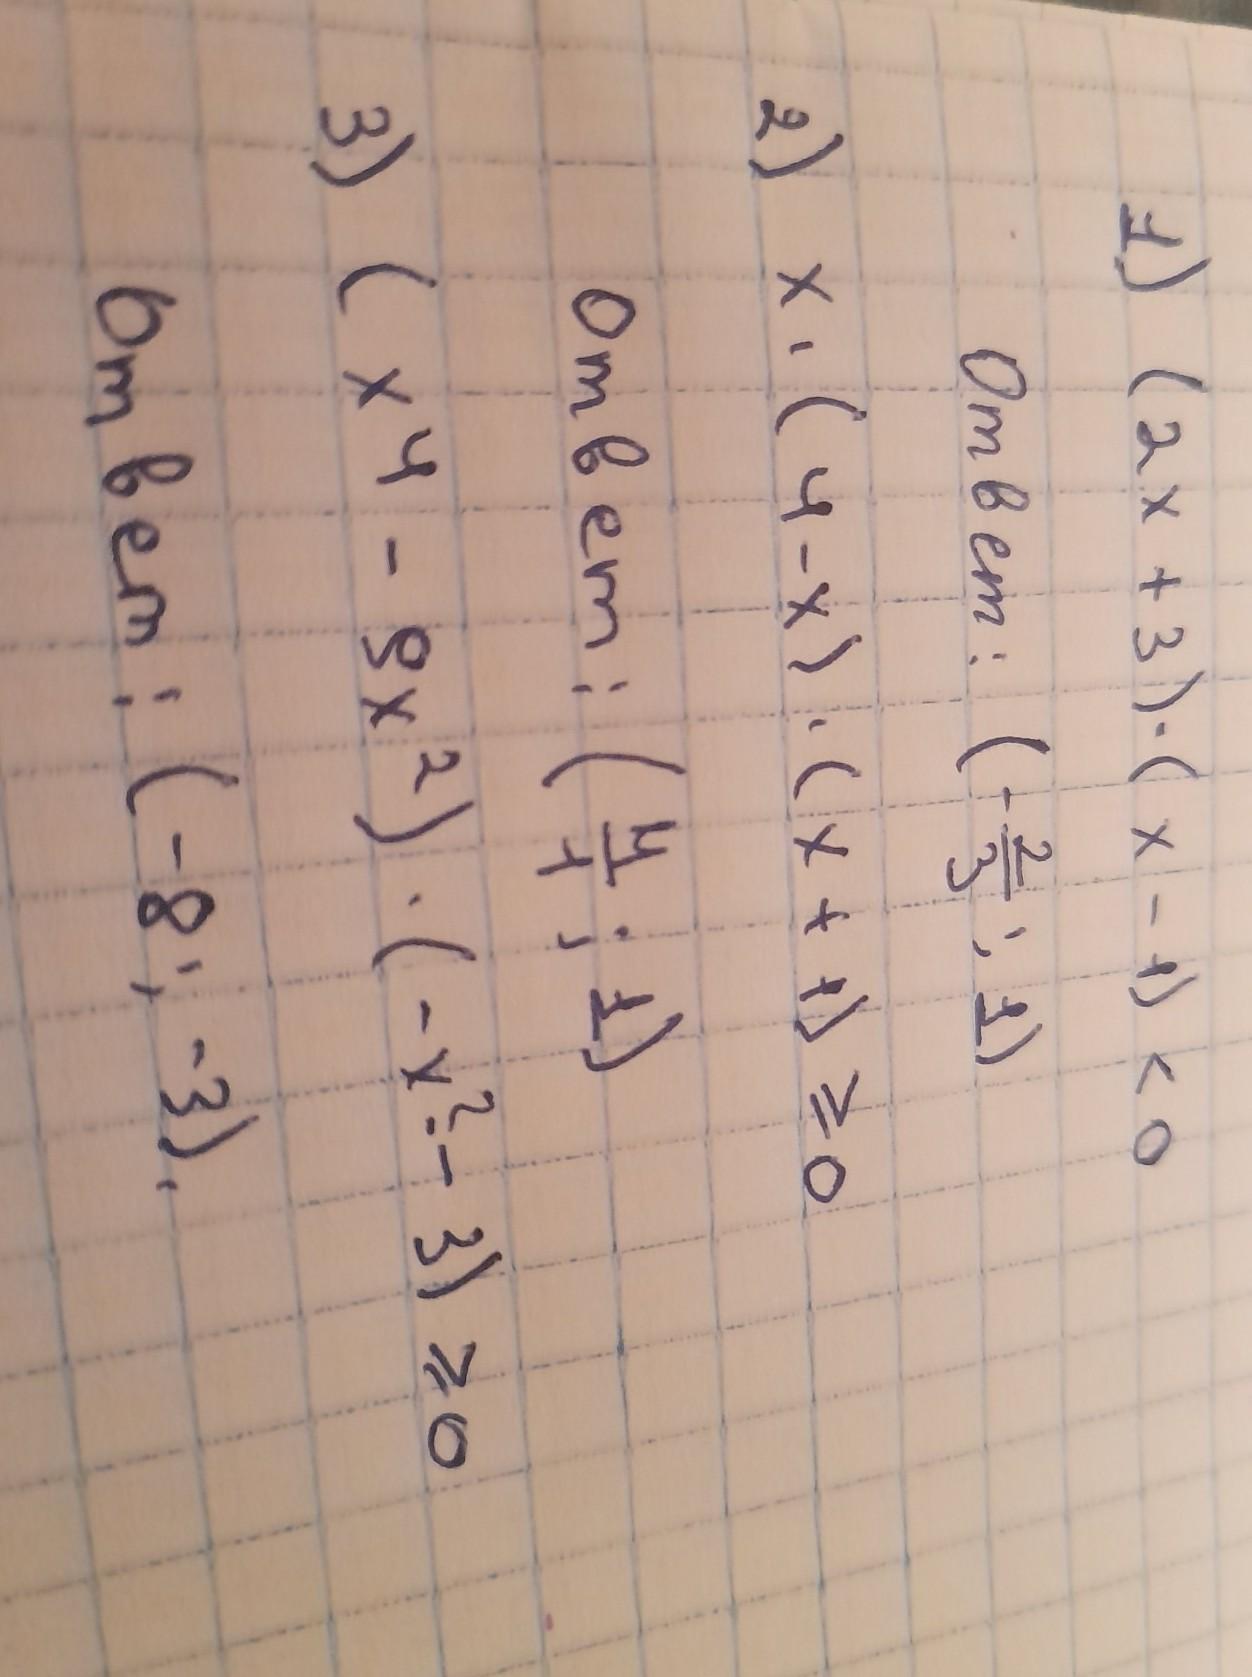 1) (2x + 3)·(x - 1) < 0
Ответ: (-2/3; 1)
2) x·(4-x)·(x+1) ≥ 0
Ответ: (4/1; 1)
3) (x4 - 9x²)·(-x² - 3) ≥ 0
Ответ: (-8; -3).